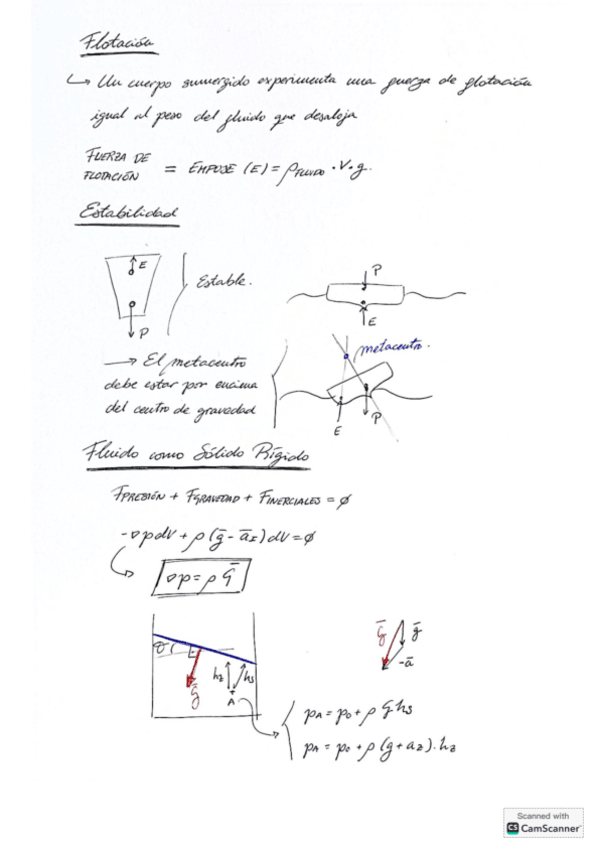 Flotación
↳ Un cuerpo sumergido experimenta una fuerza de flotación
igual al peso del fluido que desaloja
FUERZA DE
FLOTACIÓN = EMPUJE (E) = ρFLUIDO · V · g.
Estabilidad
E
P
Estable.
P
E
→ El metacentro
debe estar por encima
del centro de gravedad
metacentro.
E
P
Fluido como Sólido Rígido
FPRESIÓN + FGRAVEDAD + FINERCIALES = ∅
-∇pdV + ρ(ḡ - āI)dV = ∅
↳ ∇p = ρ Ḡ
θ
Ḡ
hz
hs
A
Ḡ
ḡ
-ā
pA = po + ρ G hs
pA = po + ρ (g + az) · hz
Scanned with
CS CamScanner